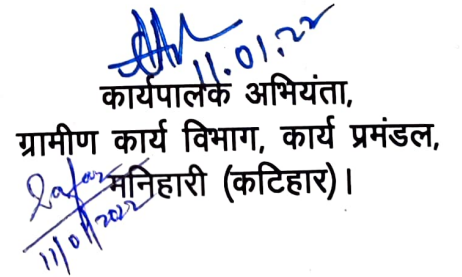 11.01.22
कार्यपालक अभियंता,
ग्रामीण कार्य विभाग, कार्य प्रमंडल,
मनिहारी (कटिहार)।
11/01/2022